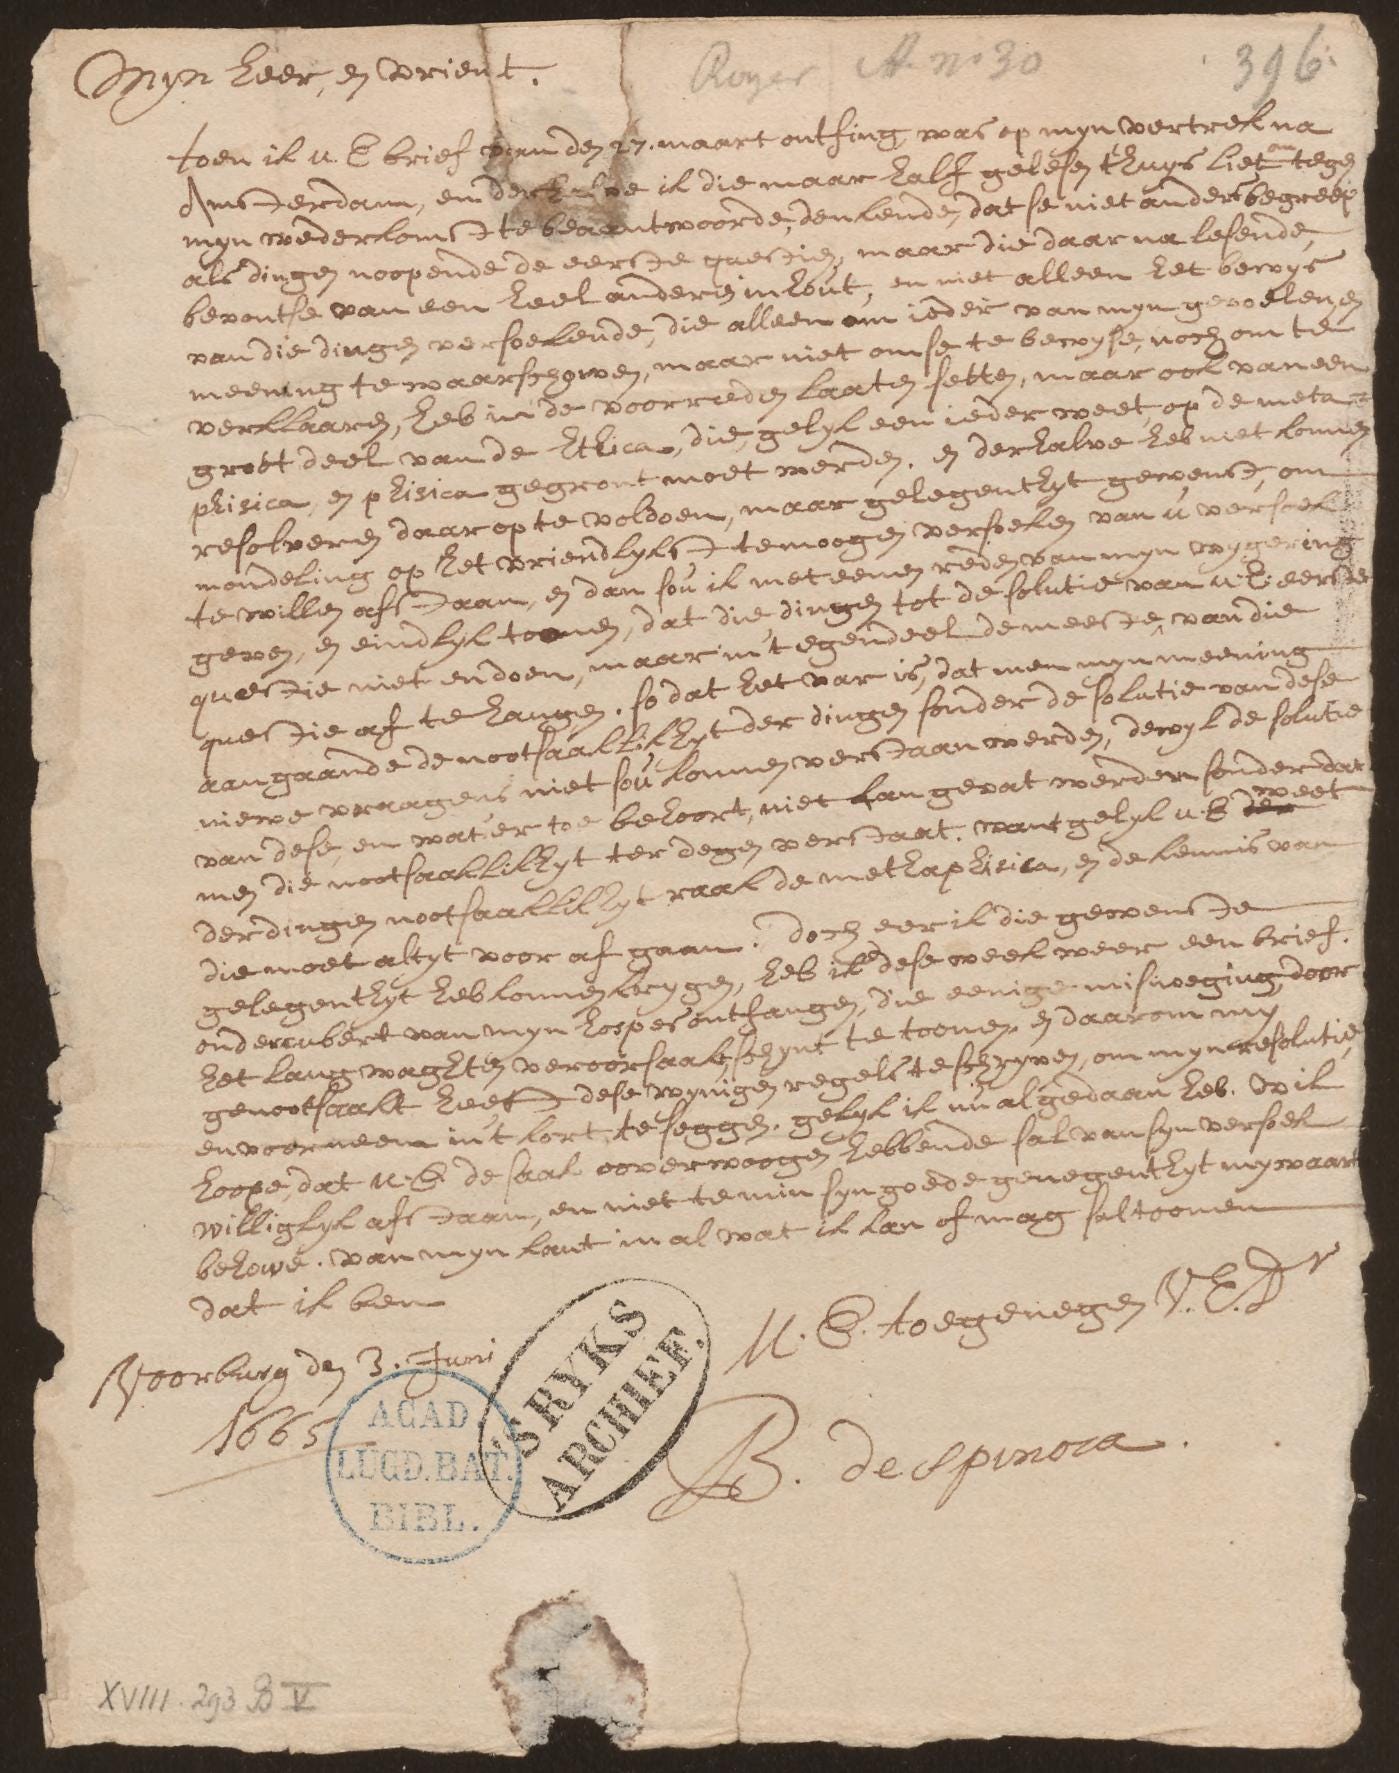 Myn heer, en vrient.
Royer A. no 30
396.
toen ik u. E brief van den 27. maart ontfing, was op myn vertrek na
Amsterdam, en derhalve ik die maar half gelesen thuys liet om tegen
myn wederkomst te beantwoorde, denkende, dat se niet anders begreep
als dingen noopende de eerste questie, maar die daar na lesende,
bevont se van een heel anderen inhout, en niet alleen het bewys
van die dingen versoekende, die alleen om ieder van myn gevoelen en
meening te waarschowen, maar niet om se te bewyse, noch om te
verklaaren, heb in de voorreden laaten setten, maar ook van een
groot deel van de Ethica, die, gelyk een ieder weet, op de meta
phisica, en phisica gegront moet werden. en derhalve heb niet konnen
resolveren daar op te voldoen, maar gelegenthyt gewenst, om
mondeling op het vriendlykst te moogen versoeken van u versoek
te willen afstaan, en dan sou ik met eenen reden van myn wygering
geven, en eindlyk toonen, dat die dingen tot de solutie van u. E. eerste
questie niet en doen, maar in 't tegendeel de meeste, van die
questie af te hangen. so dat het var is, dat men myn meening
aangaande de nootsaaklikhyt der dingen sonder de solutie van dese
niewe vraagens niet sou konnen verstaan werden, dewyl de solutie
van dese, en wat er toe behoort, niet kan gevat werden sonder dat
men die nootsaaklikhyt ter degen verstaat. want gelyk u. E weet
der dingen nootsaaklikhyt raak de methaphisica, en de kennis van
die moet altyt voor af gaan. doch eer ik die gewenste
gelegenthyt heb konnen krygen, heb ik dese week weer een brief.
onder cubert van myn hospes ontfangen, die eenige misnoeging door
het lang waghten veroorsaakt, schynt te toonen. en daarom my
genootsaakt heeft dese wynigen regels te schryven, om myn resolutie
en voorneem in't kort te seggen. gelyk ik nu al gedaan heb. Wil
hoope, dat u. E. de saak ooverwoogen hebbende sal van syn versoek
williglyk afstaan, en niet te min syn goede genegenthyt mywaart
behowe. van myn kant in al wat ik kan of mag sal toonen
dat ik ben
U. E. toegenegen V. E. Dr
Voorburg den 3. Juni
1665
B. de Spinoza.
'S RYKS
ARCHIEF.
ACAD.
LUGD. BAT.
BIBL.
XVIII. 293 B V